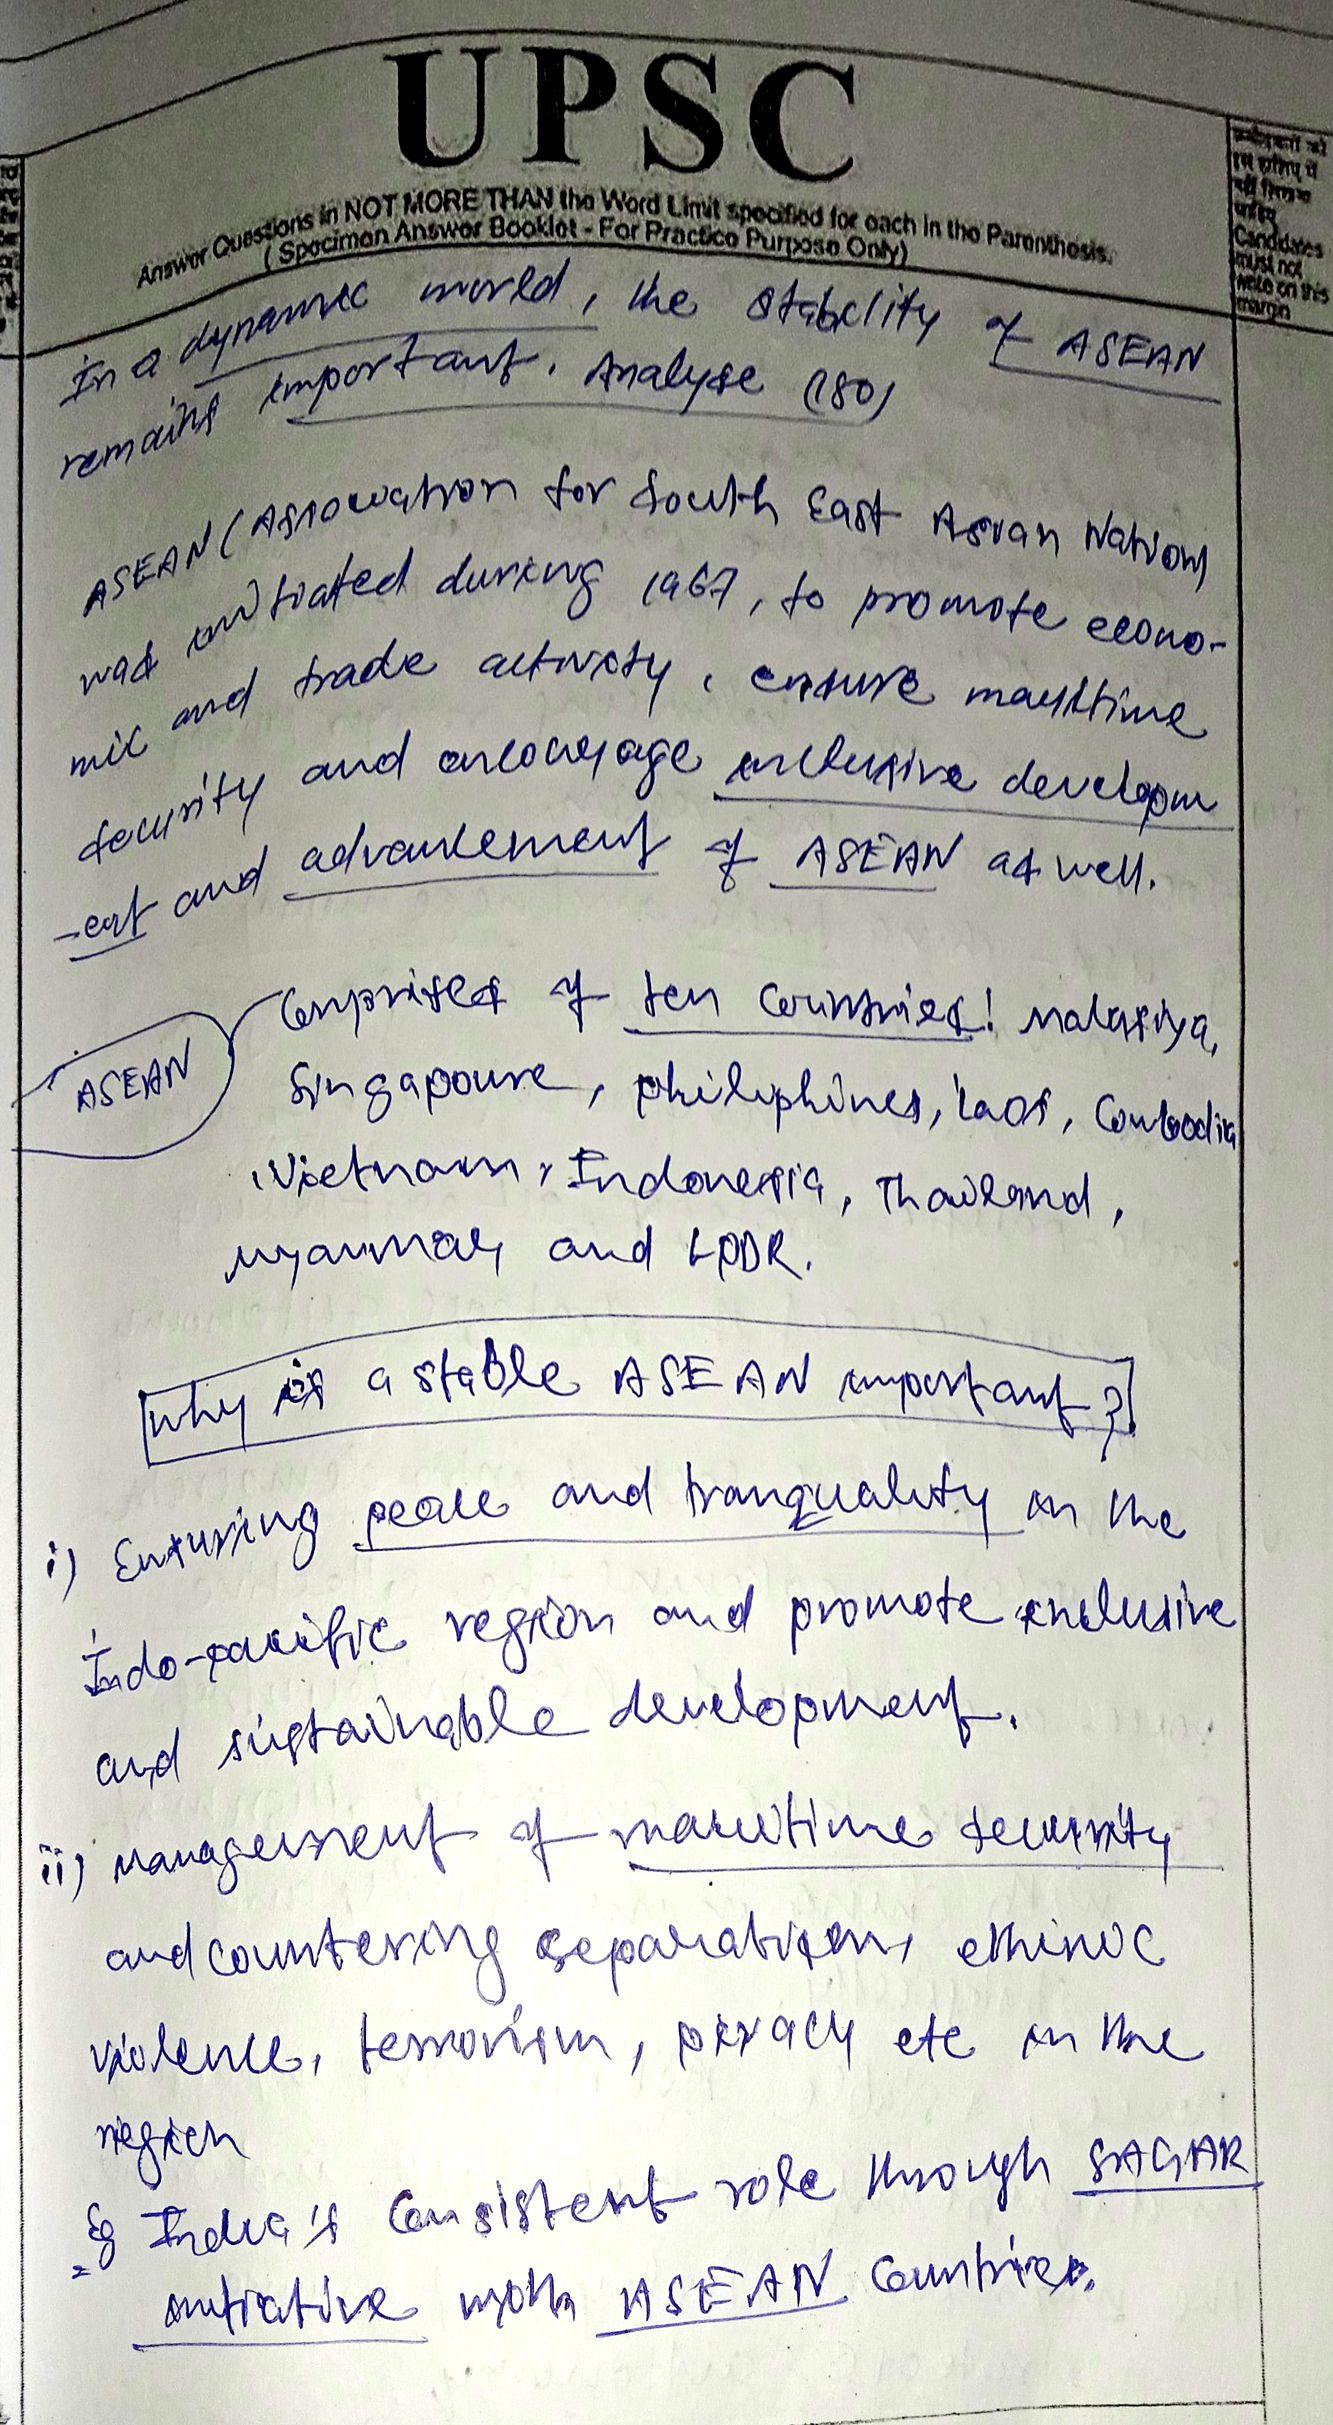 UPSC
Answer Questions in NOT MORE THAN the Word Limit specified for each in the Parenthesis.
( Specimen Answer Booklet - For Practice Purpose Only)
Candidates
must not
write on this
margin
In a dynamic world, the stability of ASEAN
remains important. Analyse (180)
ASEAN (Association for South East Asian Nation)
was initiated during 1967, to promote econo-
mic and trade activity, ensure maritime
security and encourage inclusive developm
-ent and advancement of ASEAN as well.
ASEAN
Comprises of ten countries! Malasiya,
Singapoure, philiphines, Laos, Combodia
, Vietnam, Indonesia, Thailand,
Myanmar and LPDR.
Why is a stable ASEAN important?
i) Ensuring peace and tranquality in the
Indo-pacific region and promote inclusive
and sustainable development.
ii) Management of maritime security
and countering separatism, ethinic
violence, terrorism, piracy etc in the
region
Eg India's Consistent role through SAGAR
initiative with ASEAN Countries.